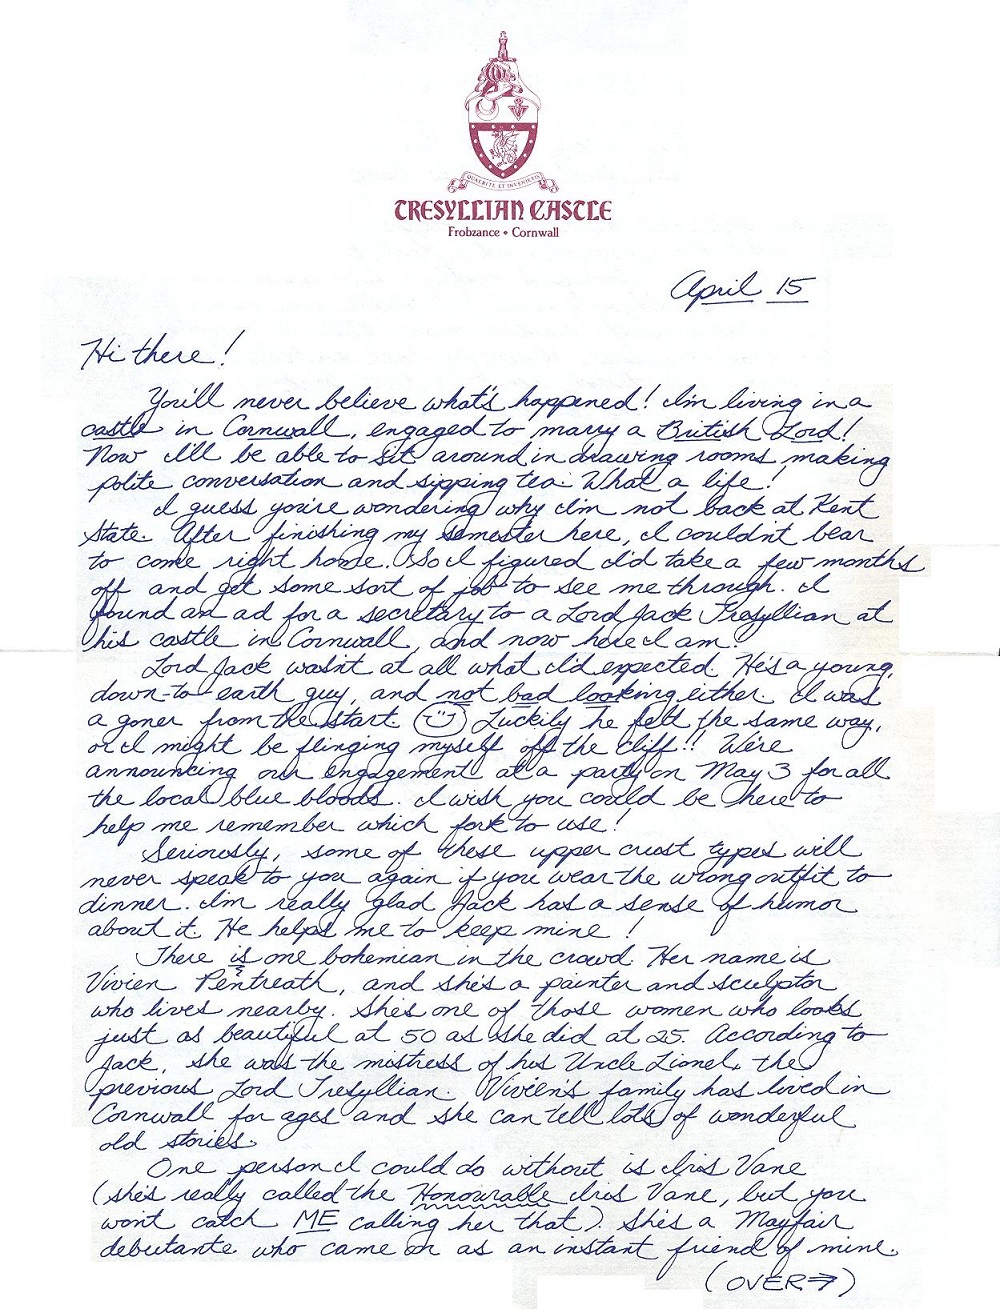 QUAERITE ET INVENIETIS
TRESYLLIAN CASTLE
Frobzance • Cornwall
April 15
Hi there!
You'll never believe what's happened! I'm living in a
castle in Cornwall, engaged to marry a British Lord!
Now I'll be able to sit around in drawing rooms, making
polite conversation and sipping tea. What a life!
I guess you're wondering why I'm not back at Kent
State. After finishing my semester here, I couldn't bear
to come right home. So I figured I'd take a few months
off and get some sort of job to see me through. I
found an ad for a secretary to a Lord Jack Tresyllian at
his castle in Cornwall, and now here I am!
Lord Jack wasn't at all what I'd expected. He's a young,
down-to-earth guy, and not bad looking either. I was
a goner from the start. Luckily he felt the same way,
or I might be flinging myself off the cliff!! We're
announcing our engagement at a party on May 3 for all
the local blue bloods. I wish you could be here to
help me remember which fork to use!
Seriously, some of these upper crust types will
never speak to you again if you wear the wrong outfit to
dinner. I'm really glad Jack has a sense of humor
about it. He helps me to keep mine!
There is one bohemian in the crowd. Her name is
Vivien Pentreath, and she's a painter and sculptor
who lives nearby. She's one of those women who looks
just as beautiful at 50 as she did at 25. According to
Jack, she was the mistress of his Uncle Lionel, the
previous Lord Tresyllian. Vivien's family has lived in
Cornwall for ages and she can tell lots of wonderful
old stories.
One person I could do without is Iris Vane
(she's really called the Honourable Iris Vane, but you
won't catch ME calling her that). She's a Mayfair
debutante who came on as an instant friend of mine.
(OVER⇒)